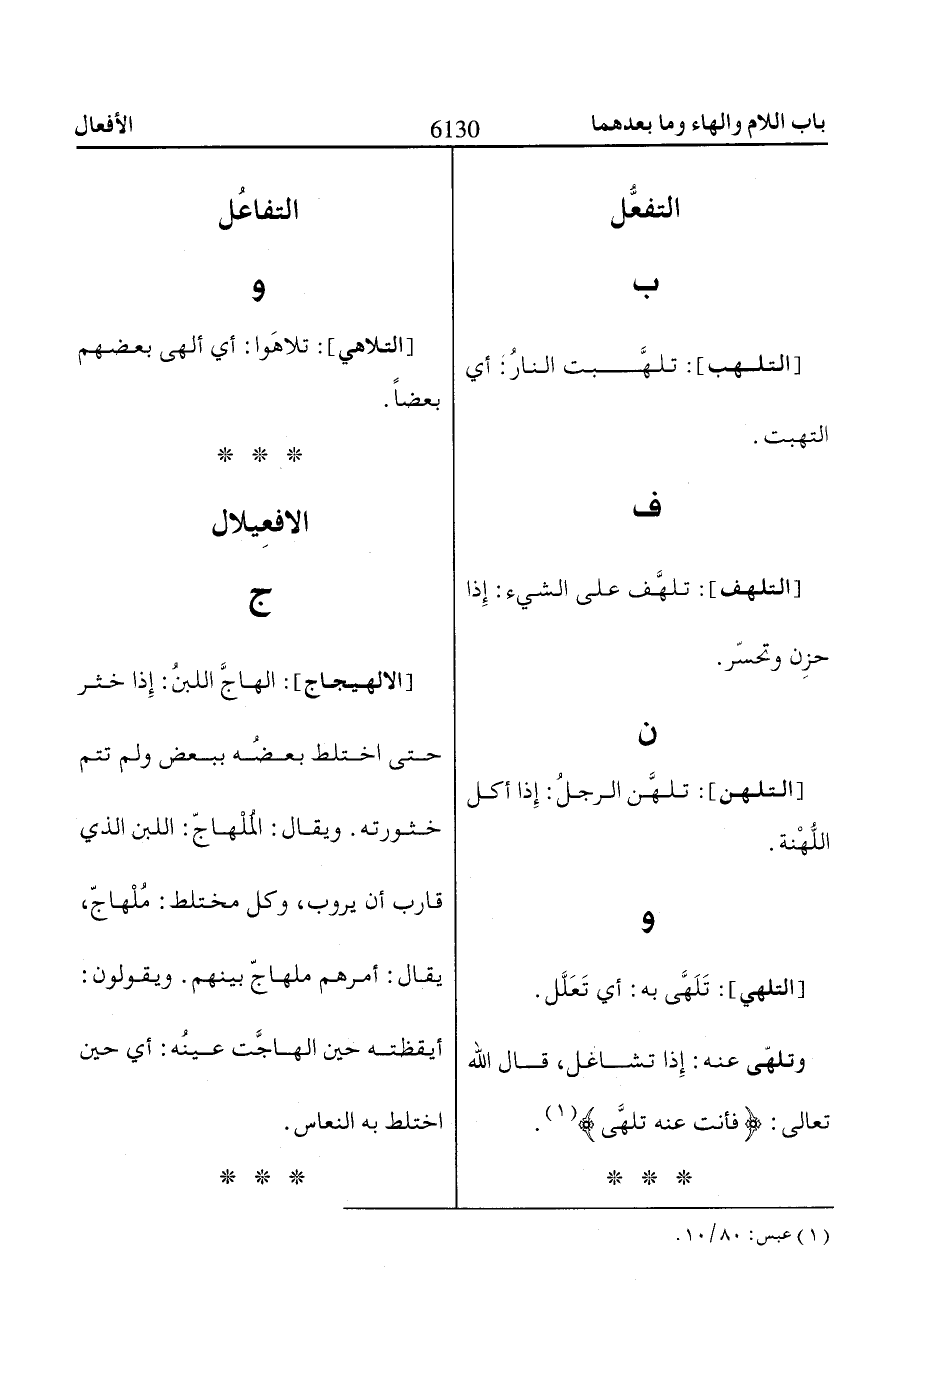 باب اللام والهاء وما بعدهما 6130 الأفعال
التفعُّل
ب
[التلهب]: تلهَّبت النارُ: أي
التهبت.
ف
[التلهف]: تلهَّف على الشيء: إِذا
حزِن وتحسّر.
ن
[التلهن]: تلهَّن الرجلُ: إِذا أكل
اللُّهْنة.
و
[التلهي]: تَلَهَّى به: أي تَعَلَّل.
وتلهّى عنه: إِذا تشاغل، قال الله
تعالى: ﴿فأنت عنه تلهَّى﴾(١).
* * *
التفاعُل
و
[التلاهي]: تلاهَوا: أي ألهى بعضهم
بعضاً.
* * *
الافعِيلال
ج
[الالهيجاج]: الهاجَّ اللبنُ: إِذا خثر
حتى اختلط بعضُه ببعض ولم تتم
خثورته. ويقال: المُلْهاجّ: اللبن الذي
قارب أن يروب، وكل مختلط: مُلْهاجّ،
يقال: أمرهم ملهاجّ بينهم. ويقولون:
أيقظته حين الهاجَّت عينُه: أي حين
اختلط به النعاس.
* * *
(١) عبس: ١٠/٨٠.